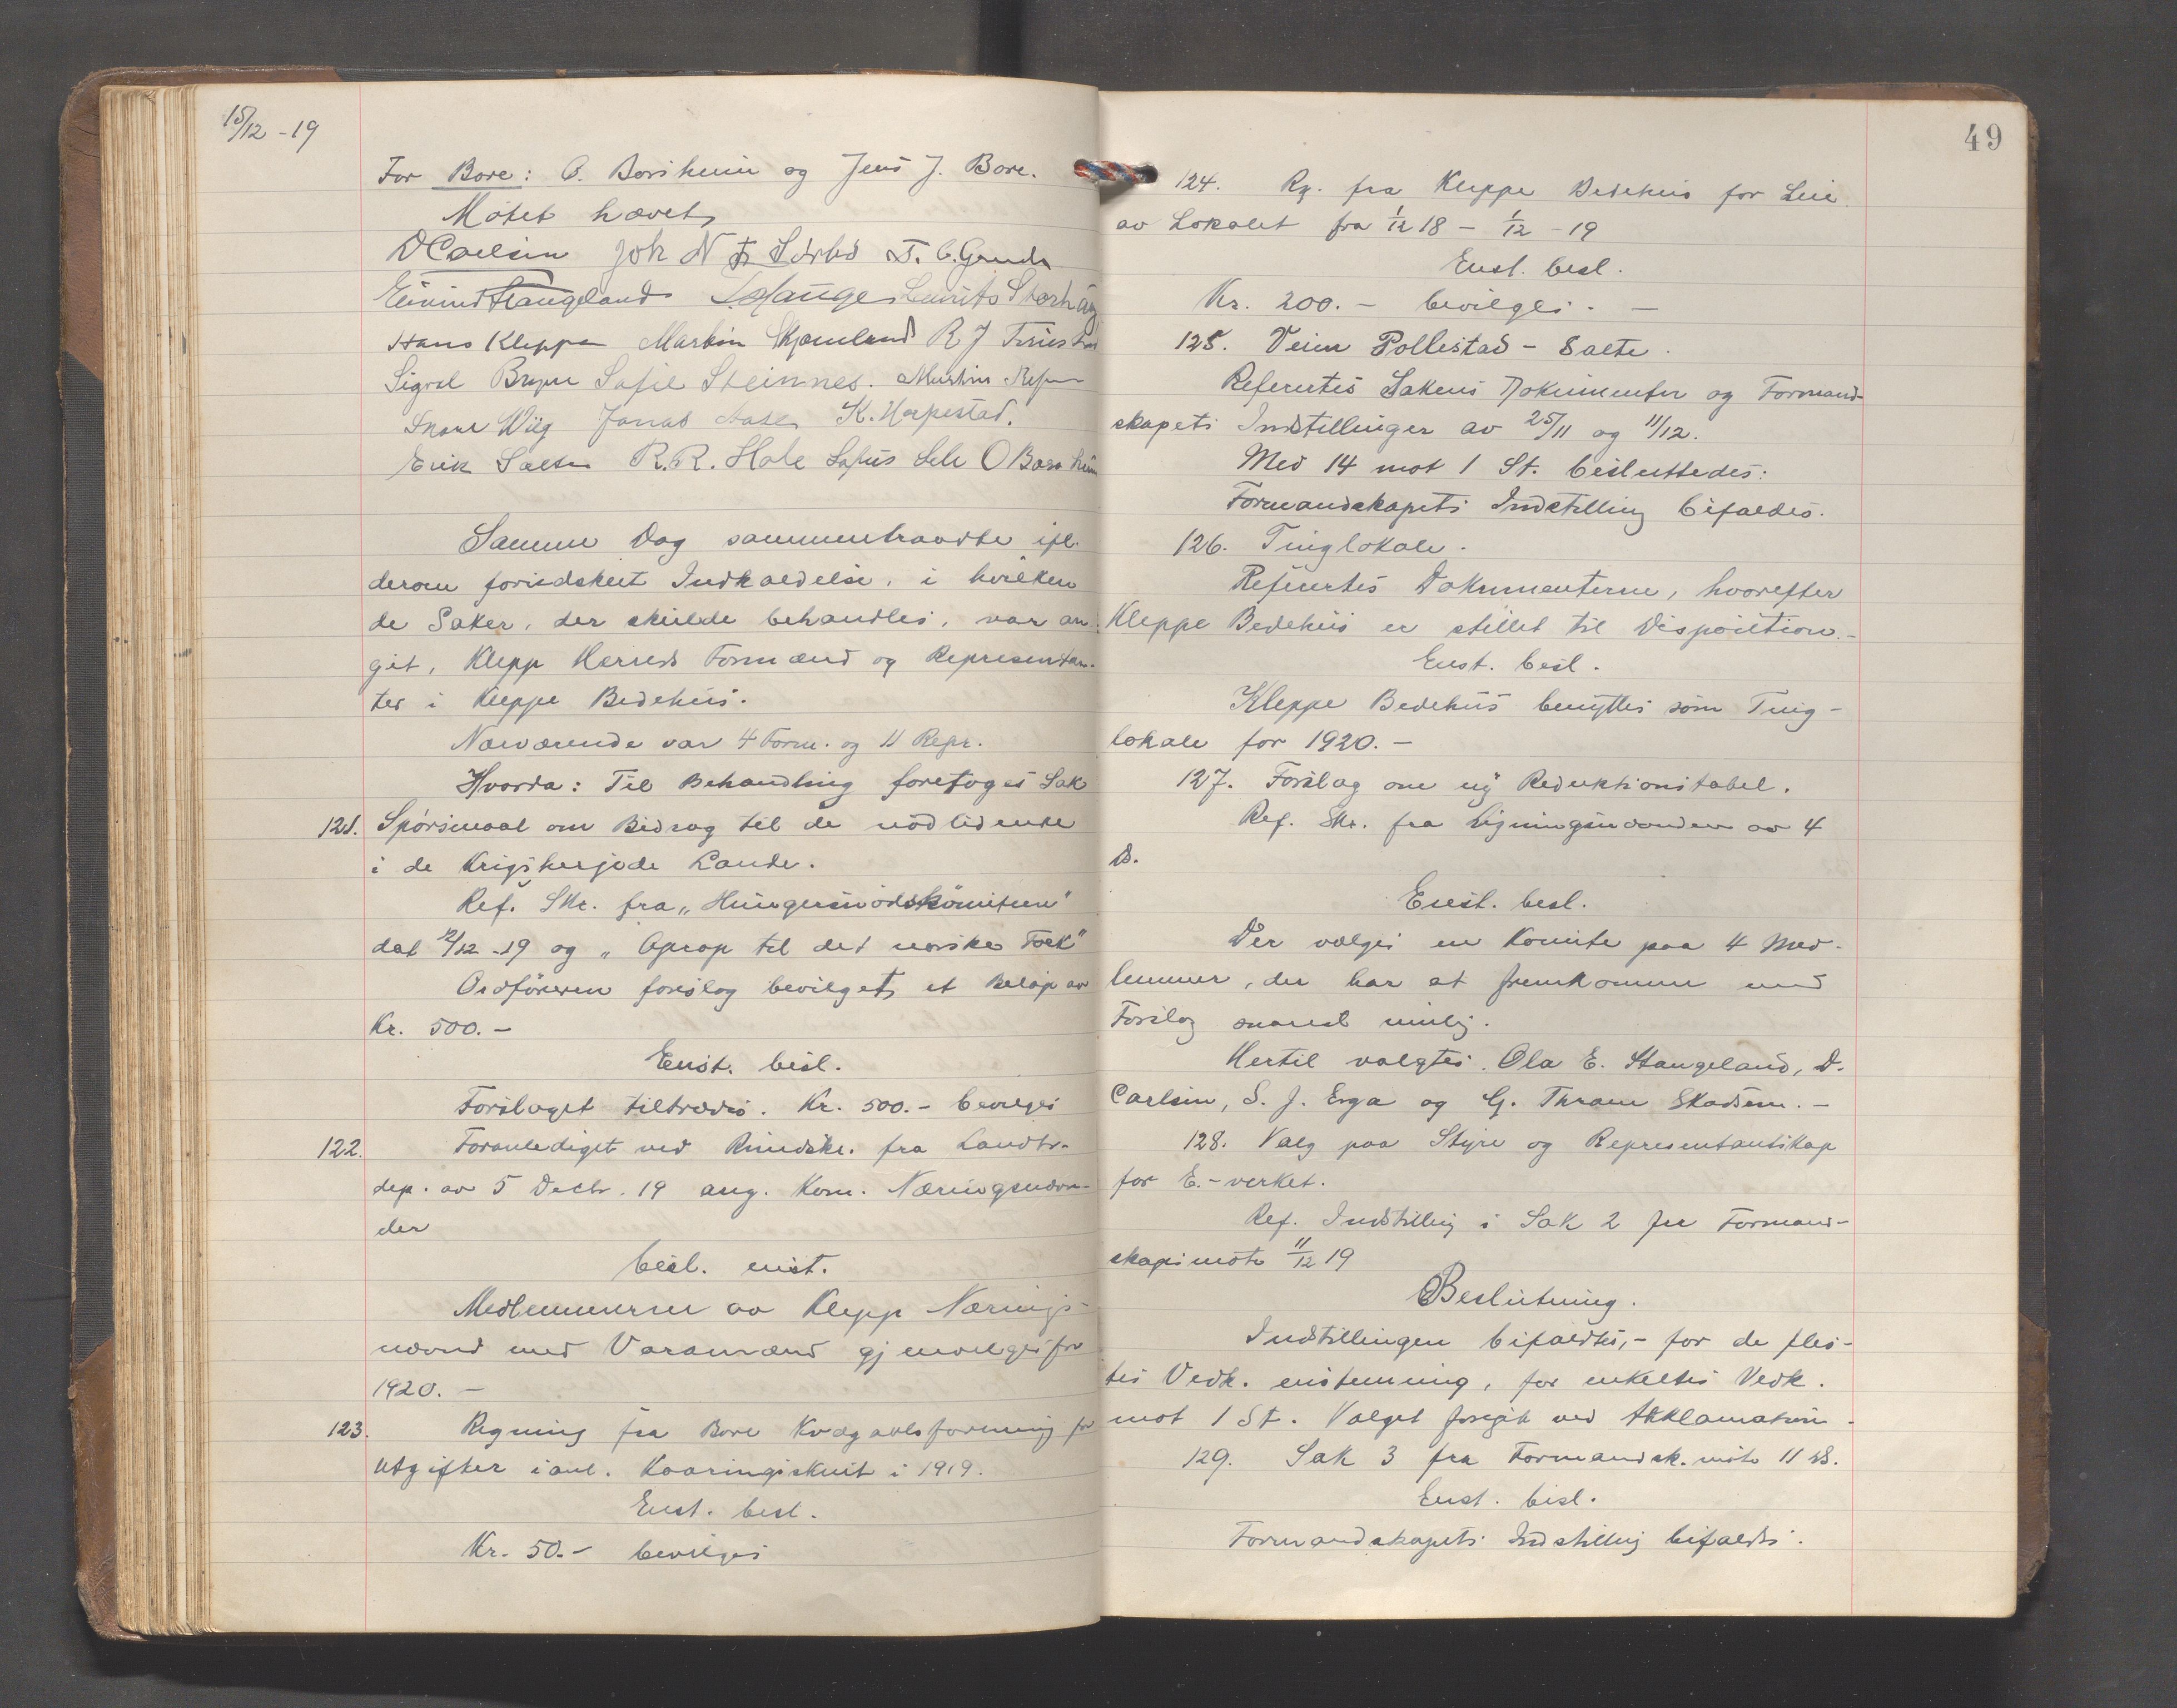 15/12 - 19
For Bore: O. Borsheim og Jens J. Bore.
Møtet hævet,
D Carlsen Joh N Sørbø T. C. Grude
Eivind Stangeland Hauge Laurits Storhaug
Hans Kleppe Martin Skjæveland R J
Sigval Bryne Sofie Steinnes. Martin
Wiig Jonas Aase K. Horpestad.
Erik Salte R. R. Hole Lafus Lele O Borsheim
Samme Dag sammentraadte ifl.
derom forutskeet Indkaldelse, i hvilken
de Saker, der skulde behandles, var an-
git, Klepp Herreds Formænd og Representan-
ter i Kleppe Bedehus.
Nærværende var 4 Form. og 11 Repr.
Hvorda: Til Behandling foretoges Sak
121. Spørsmaal om Bidrag til de nødlidende
i de Krigsherjede Lande.
Ref. Skr. fra „Hungersnødskomiteen"
dat 2/12 - 19 og „Oprop til det norske Folk"
Ordføreren foreslog bevilget, et Beløp av
Kr. 500.-
Enst. besl.
Forslaget tiltrædes. Kr. 500.- bevilges
122. Foranlediget ved Rundskr. fra Landbr.
dep. av 5 Decbr. 19 ang. Kom. Næringsnævn-
der
besl. enst.
Medlemmerne av Klepp Nærings-
nævnd med Varamænd gjenvælges for
1920. -
123. Regning fra Bore Kvægavlsforening for
Utgifter i anl. Kaaringsskuet i 1919.
Enst. besl.
Kr. 50.- bevilges
49
124. Rg. fra Kleppe Bedehus for Leie
av Lokalet fra 1/12 18 - 1/12 - 19
Enst. besl.
Kr. 200.- bevilges. -
125. Veien Pollestad - Salte.
Refertes Sakens Dokumenter og Formand-
skapets Indstillinger av 25/11 og 11/12.
Med 14 mot 1 St. besluttedes:
Formandskapets Indstilling bifaldes.
126. Tinglokale.
Refertes Dokumenterne, hvorefter
Kleppe Bedehus er stillet til Disposition.-
Enst. besl.
Kleppe Bedehus benyttes som Ting-
lokale for 1920. -
127. Forslag om ny Reduktionstabel.
Ref. Skr. fra Ligningsnævnden av 4
ds.
Enst. besl.
Der vælges en Komite paa 4 Med-
lemmer, der har at fremkomme med
Forslag snarest mulig.
Hertil valgtes. Ola E. Stangeland, D.
Carlsen, S. J. Erga og G. Thrane Skadsem. -
128. Valg paa Styre og Representantskap
for E.-verket.
Ref. Indstilling i Sak 2 fra Formand-
skapsmøte 11/12 19
Beslutning.
Indstillingen bifaldtes, - for de fles-
tes Vedk. enstemmig, for enkeltes Vedk.
mot 1 St. Valget foregik ved Akklamation.
129. Sak 3 fra Formandsk. møte 11 ds.
Enst. besl.
Formandskapets Indstilling bifaldes.